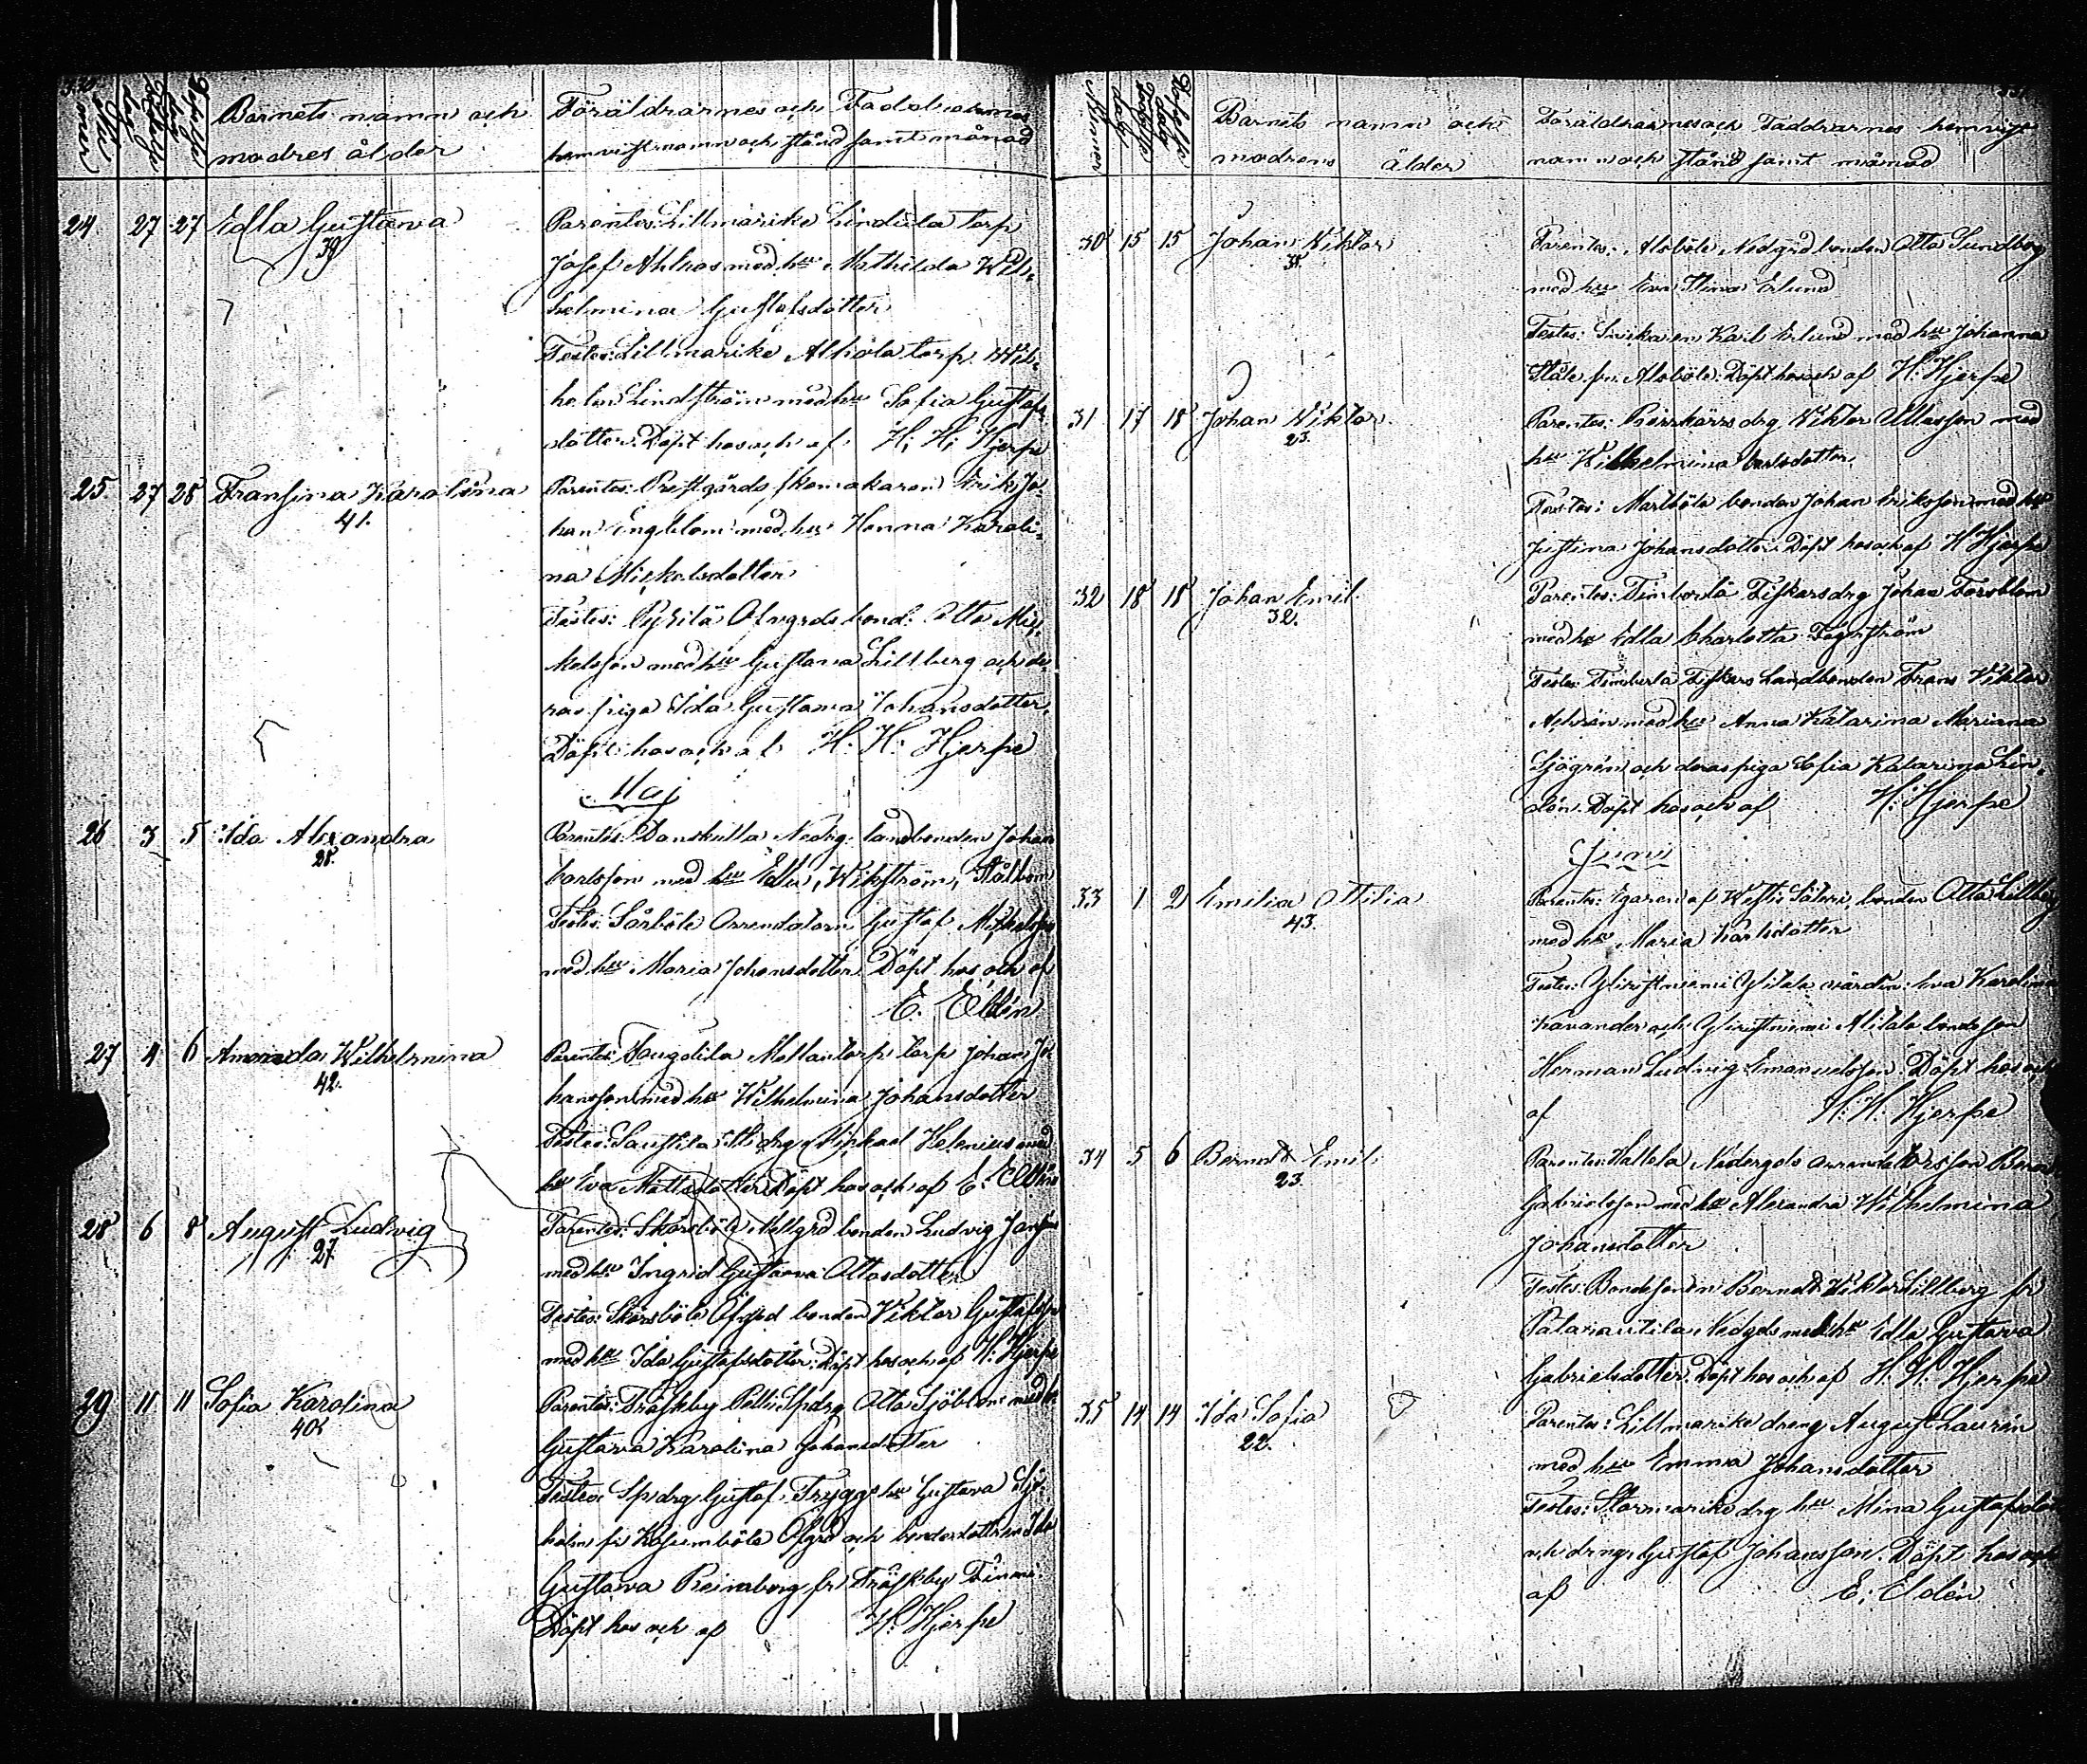 Nummer
Födelse dag
Döpelse dag
Barnets namn och
modres ålder
Föräldrarnes och Faddrarnes
hemvist namn och stånd samt månad
24 27 27 Edla Gustava
39
Parentes: Lillmarike Lindula torp
Josef Ahlros med hu Mathilda Wil-
helmina Gustafsdotter
Testes: Lillmarike Alhola torp. Wil-
helm Lindström med hu Sofia Gustafs
dotter. Döpt hos och af H. H. Hjerpe
25 27 28 Fransina Karolina
41.
Parentes: Prestgårds skomakaren Erik Jo-
han Engblom med hu Hanna Karoli-
na Mickelsdotter
Testes: Pyhilä Ofvgrds bond. Otto Mic-
kelsson med hu Gustava Lillberg och de-
ras piga Ida Gustava Johansdotter.
Döpt hos och af H. H. Hjerpe
Maj
26 3 5 Ida Alexandra
28.
Parentes: Danskulla Nedrg. landbonden Johan
Carlsson med hu Edla Wikström, Stålbom
Testes: Sårböle Arrendatorn Gustaf Mickelsson
med hu Maria Johansdotter. Döpt hos och af
E. Eldén
27 4 6 Amanda Wilhelmina
42.
Parentes: Mattas torp torp Johan Jo
hansson med hu Wilhelmina Johansdotter
Testes: drg Michael Helenius med
hu Eva Mattsdotter Döpt hos och af E. Eldén
28 6 8 August Ludvig
27
Parentes: Skårsböle Mellgrd bonden Ludvig Jansson
med hu Ingrid Gustava Ottosdotter
Testes: Skårsböle Öfvgrd bonden Viktor Gustafsson
med hu Ida Gustafsdotter. Döpt hos och af H. Hjerpe
29 11 11 Sofia Karolina
40
Parentes: Fräskby Pellis Spdrg Otto Sjöblom med hu
Gustava Karolina Johansdotter
Testes: Spdrg Gustaf Trygg hu Gustava Sjö-
holm fr Kasumböle Ofgrd och bondedottren Ida
Gustava Reinsberg fr Fräskby Finni.
Döpt hos och af H. Hjerpe
Nummer
Födelse dag
Döpelse dag
Barnets namn och
modrens ålder
Föräldrarnes och Faddrarnes hemvist
namn och stånd samt månad
30 15 15 Johan Viktor
38.
Parentes: Alsböle Nedgrd bonden Otto Sundberg
med hu Eva Stina Erlund
Testes: Snickaren Karl Erlund med hu Johanna
Ståle fr. Alsböle. Döpt hos och af H. Hjerpe
31 17 18 Johan Viktor.
23.
Parentes: drg Viktor Ottosson med
hu Wilhelmina Carlsdotter.
Testes: Marlböle bonden Johan Eriksson med hu
Justina Johansdotter. Döpt hos och af H Hjerpe
32 18 18 Johan Emil.
32.
Parentes: Fimborla Fiskarsdrg Johan Forsblom
med hu Edla Charlotta Fagerström
Testes: Fimborla Fiskars Landbonden Frans Viktor
Achrén med hu Anna Katarina Mariana
Sjögrén och deras piga Sofia Katarina Lin-
dén. Döpt hos och af H. Hjerpe
Juni
33 1 2 Emilia Ottilia
43.
Parentes: Egaren af Säteri bonden Otto Lillberg
med hu Maria Karlsdotter
Testes: värdin: Eva Karolina
Kavander och Alitalo bondeson
Herman Ludvig Emanuelsson. Döpt hos och
af H. H. Hjerpe
34 5 6 Berndt Emil.
23.
Parentes: Hallela Nedergds
Gabrielsson med hu Alexandra Wilhelmina
Johansdotter
Testes: Bondesonen Berndt Viktor Lillberg fr
Nedgds med hu Edla Gustava
Gabrielsdotter. Döpt hos och af H. H. Hjerpe
35 14 14 Ida Sofia
22.
Parentes: Lillmarike dreng August Laurén
med hu Emma Johansdotter
Testes: Stormarike drg hu Mina Gustafsdotter
och dreng Gustaf Johansson. Döpt hos och
af E. Eldén